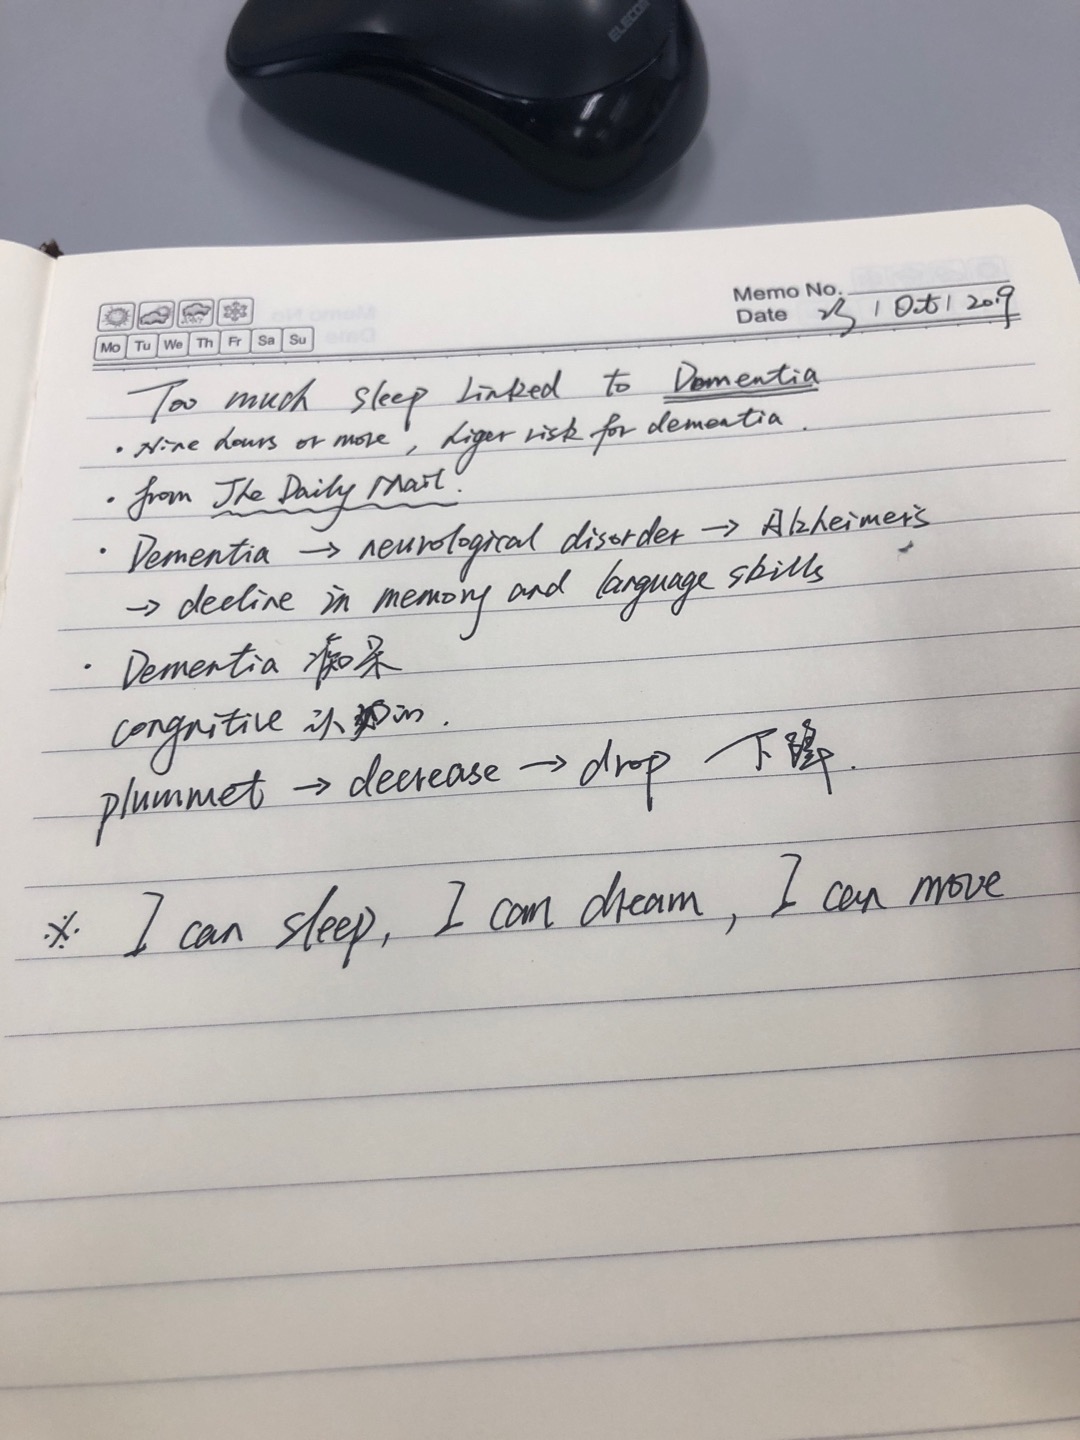 ELECOM
Memo No.
Date 25 / Oct / 2019
Mo Tu We Th Fr Sa Su
Too much sleep Linked to Dementia
· Nine hours or more, higer risk for dementia.
· from The Daily Mail.
· Dementia → neurological disorder → Alzheimer's
→ decline in memory and language skills
· Dementia 痴呆
congnitive 认知
plummet → decrease → drop 下降.
※ I can sleep, I can dream, I can move